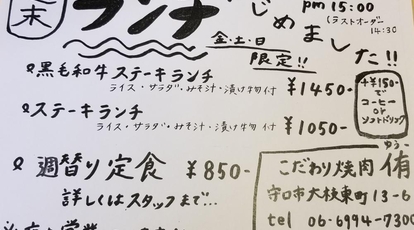 末
ランチ
じめました!!
pm 15:00
(ラストオーダー
14:30
金・土・日
限定!!
黒毛和牛ステーキランチ
ライス・サラダ・みそ汁・漬け物付
¥1450-
ステーキランチ
ライス・サラダ・みそ汁・漬け物付
¥1050-
+¥150-
で
コーヒー
or
ソフトドリンク
週替り定食 ¥850-
詳しくはスタッフまで…
こだわり焼肉 侑
ゆう
守口市大枝東町13-6
tel 06-6994-7300